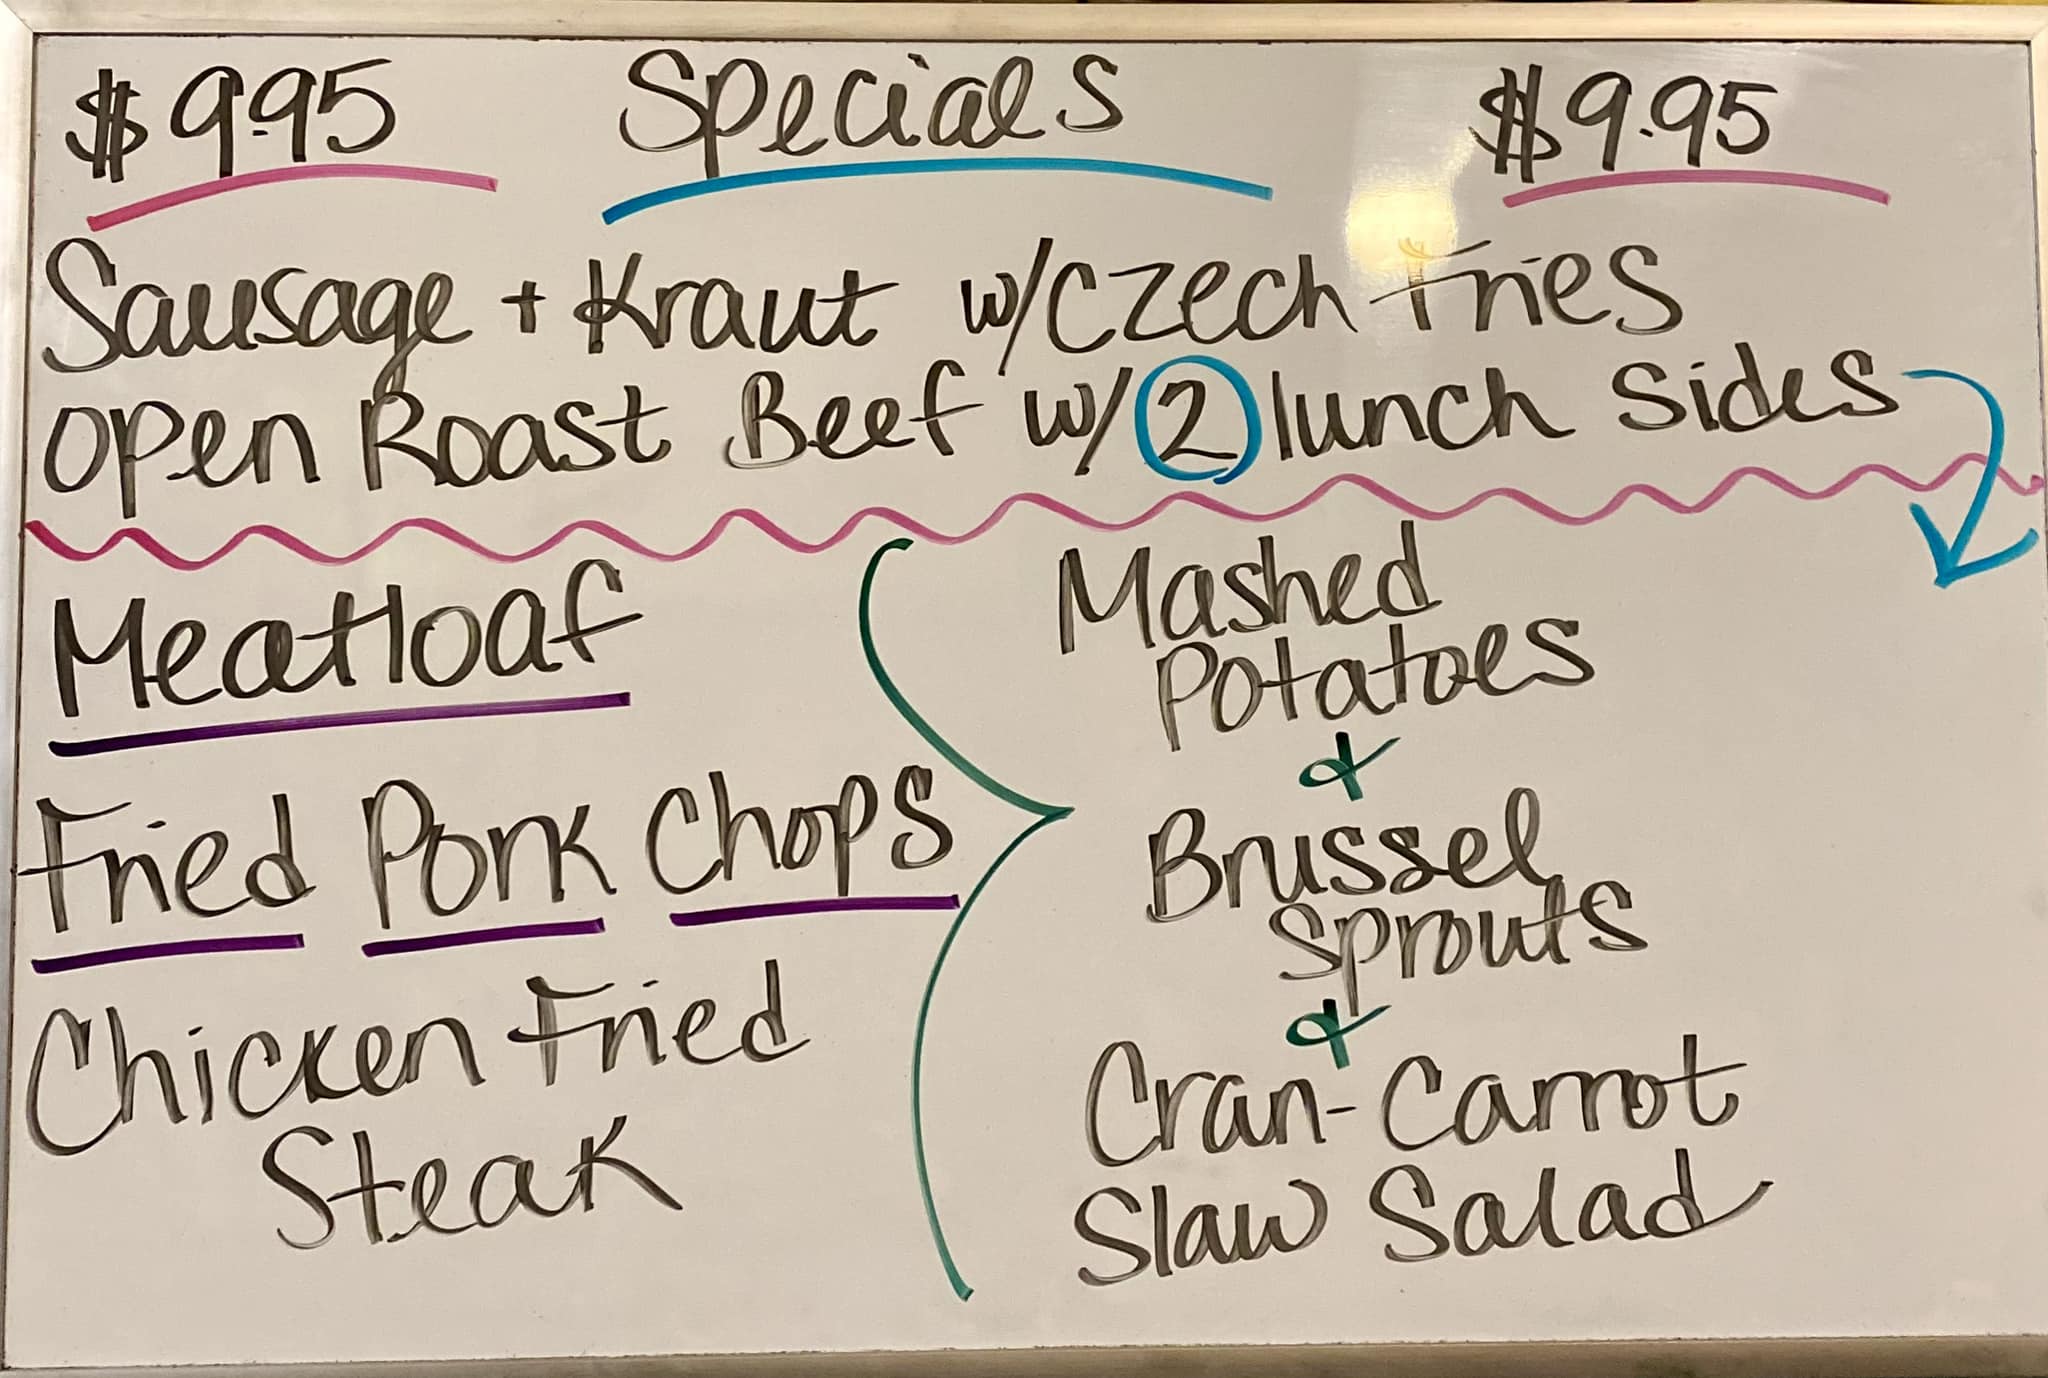 $9.95 Specials $9.95
Sausage + Kraut w/Czech Fries
Open Roast Beef w/ 2 lunch Sides
Meatloaf
Fried Pork Chops
Chicken Fried
Steak
Mashed
Potatoes
&
Brussel
Sprouts
&
Cran-Carrot
Slaw Salad